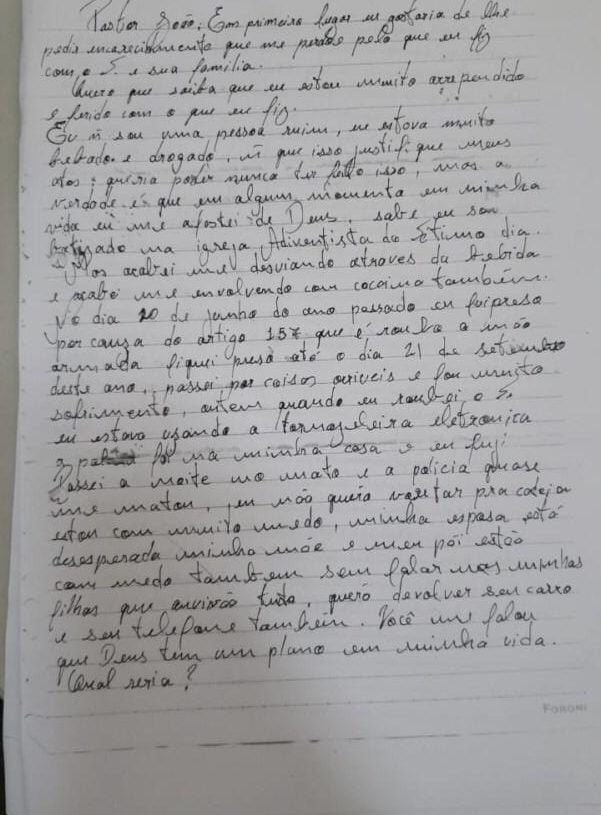 Pastor João; Em primeiro lugar eu gostaria de lhe
pedir encarecidamente que me perdoe pelo que eu fiz
com o S. e sua família.
Quero que saiba que eu estou muito arrependido
e ferido com o que eu fiz.
Eu ñ sou uma pessoa ruim, eu estova muito
bebado e drogado, ñ que isso justifique meus
atos; queria poder nunca ter feito isso, mas a
verdade é que em algum momenta em minha
vida eu me afostei de Deus, sabe eu sou
batizado na igreja Adventista do Sétimo dia.
Mas acabei me desviando atraves da bebida
e acabei me envolvendo com cocaina também.
No dia 20 de junho do ano passado eu fui preso
por causa do artigo 157 que é roubo a mão
armada fiquei preso até o dia 21 de setembro
deste ano, passei por coisas orriveis e fou muito
sofrimento, ontem quando eu roubei o S.
eu estava usando a tornozeleira eletronica
a foi na minha casa e eu fugi
Passei a noite no mato e a policia quase
me matou, eu não quero voutar pra cadeia
estou com muito medo, minha esposa está
desesperada minha mãe e meu pai estão
com medo tambem sem falar nas minhas
filhas que tudo, quero devolver seu carro
e seu telefone também. Você me falou
que Deus tem um plano em minha vida.
Qual seria?
FORONI